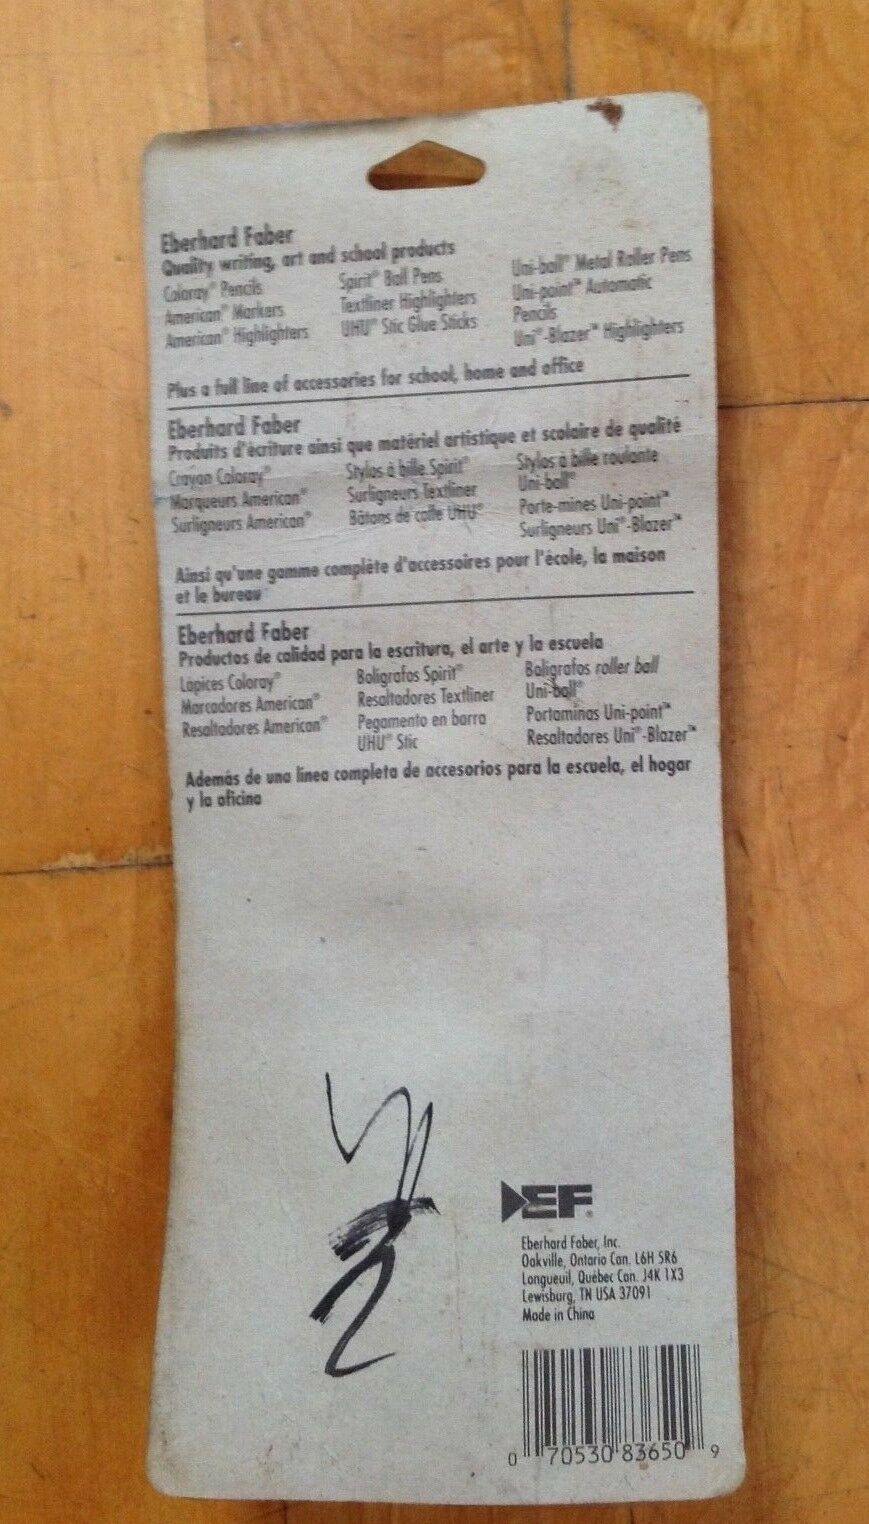 Eberhard Faber
Quality writing, art and school products
Coloray® Pencils
American® Markers
American® Highlighters
Spirit® Ball Pens
Textliner Highlighters
UHU® Stic Glue Sticks
Uni-ball® Metal Roller Pens
Uni-point™ Automatic
Pencils
Uni®-Blazer™ Highlighters
Plus a full line of accessories for school, home and office
Eberhard Faber
Produits d'écriture ainsi que matériel artistique et scolaire de qualité
Crayon Coloray®
Marqueurs American®
Surligneurs American®
Stylos à bille Spirit®
Surligneurs Textliner
Bâtons de colle UHU®
Stylos à bille roulante
Uni-ball®
Porte-mines Uni-point™
Surligneurs Uni®-Blazer™
Ainsi qu'une gamme complète d'accessoires pour l'école, la maison
et le bureau
Eberhard Faber
Productos de calidad para la escritura, el arte y la escuela
Lápices Coloray®
Marcadores American®
Resaltadores American®
Bolígrafos Spirit®
Resaltadores Textliner
Pegamento en barra
UHU® Stic
Bolígrafos roller ball
Uni-ball®
Portaminas Uni-point™
Resaltadores Uni®-Blazer™
Además de una línea completa de accesorios para la escuela, el hogar
y la oficina
EF®
Eberhard Faber, Inc.
Oakville, Ontario Can. L6H 5R6
Longueuil, Québec Can. J4K 1X3
Lewisburg, TN USA 37091
Made in China
0 70530 83650 9